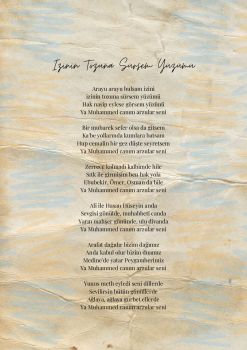 İzinin Tozuna Sürsem Yüzümü
Arayu arayu bulsam izini
izinin tozuna sürsem yüzünü
Hak nasip eylese görsem yüzünü
Ya Muhammed canım arzular seni
Bir mubarek sefer olsa da gitsem
Ka'be yollarında kumlara batsam
Hup cemalin bir gez düşte seyretsem
Ya Muhammed canım arzular seni
Zerrece kalmadı kalbimde hile
Sıtk ile girmişim ben hak yola
Ebubekir, Ömer, Osman da bile
Ya Muhammed canım arzular seni
Ali ile Hasan Hüseyin anda
Sevgisi gönülde, muhabbeti canda
Yarın mahşer gününde, ulu divanda
Ya Muhammed canım arzular seni
Arafat dağıdır bizim dağımız
Anda kabul olur bizim duamız
Medine'de yatar Peygamberimiz
Ya Muhammed canım arzular seni
Yunus meth eyledi seni dillerde
Sevilirsin bütün gönüllerde
Ağlaya, ağlaya gurbet ellerde
Ya Muhammed canım arzular seni